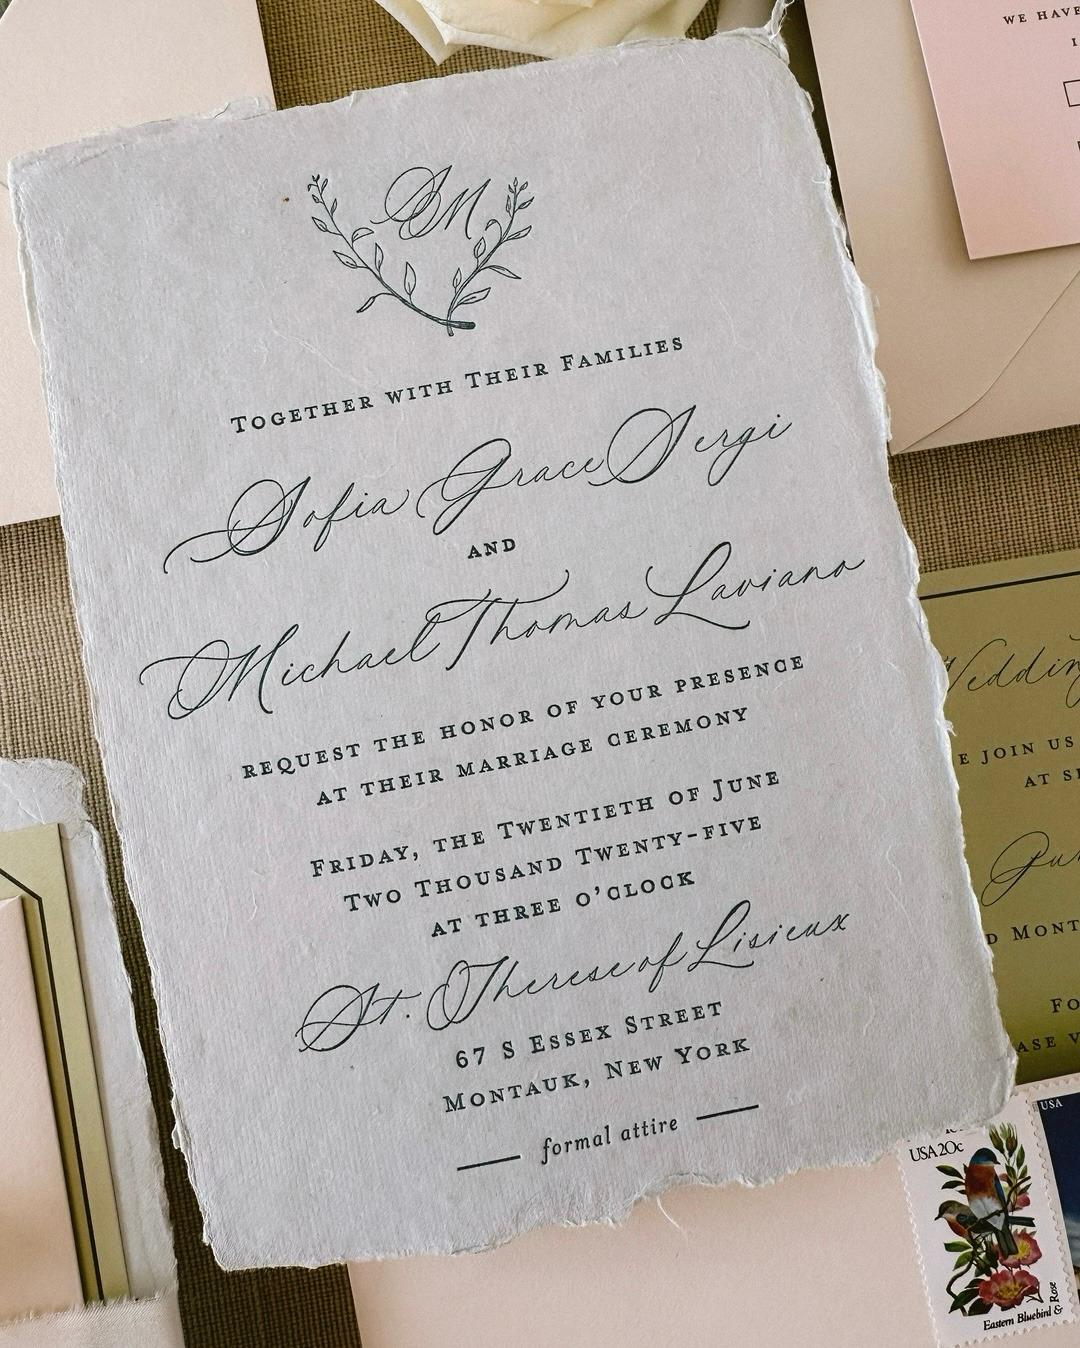 SM
Together with Their Families
Sofia Grace Sergi
and
Michael Thomas Laviano
request the honor of your presence
at their marriage ceremony
Friday, the Twentieth of June
Two Thousand Twenty-five
at three o'clock
St. Therese of Lisieux
67 S Essex Street
Montauk, New York
formal attire
WE HAVE
Wedding
JOIN US
AT
USA 20c
USA
Eastern Bluebird &
Rose